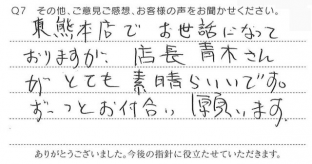 Q7 その他、ご意見ご感想、お客様の声をお聞かせください。
東熊本店で お世話になって
おりますが、店長 青木さん
がとても素晴らいいです。
ずーっとお付合い願います。
ありがとうございました。今後の指針に役立たせていただきます。